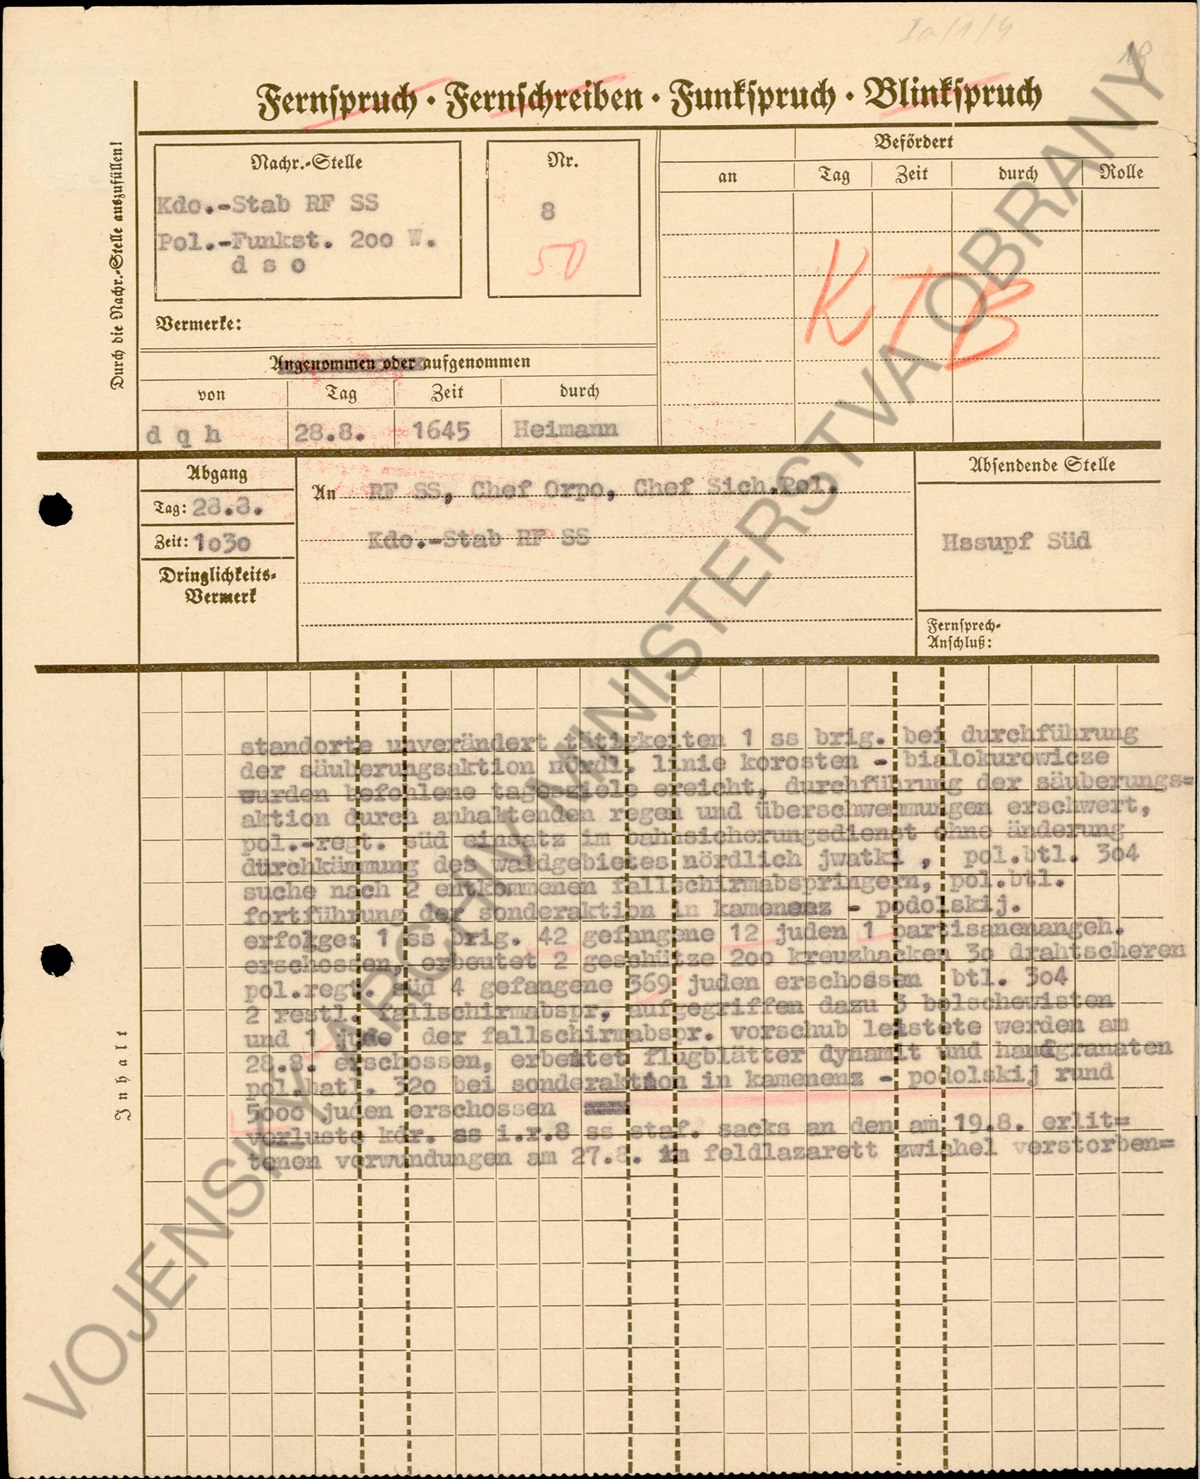 Ia/1/4
18
Fernspruch · Fernschreiben · Funkspruch · Blinkspruch
Durch die Nachr.-Stelle auszufüllen!
Nachr.-Stelle
Kdo.-Stab RF SS
Pol.-Funkst. 2oo W.
d s o
Nr.
8
50
Befördert
an Tag Zeit durch Rolle
KTB
Vermerke:
Angenommen oder aufgenommen
von Tag Zeit durch
d q h 28.8. 1645 Heimann
Abgang
Tag: 28.8.
Zeit: 1o3o
Dringlichkeits-
Vermerk
An RF SS, Chef Orpo, Chef Sich.Pol.
Kdo.-Stab RF SS
Absendende Stelle
Hssupf Süd
Fernsprech-
Anschluß:
Inhalt
standorte unverändert tätigkeiten 1 ss brig. bei durchführung
der säuberungsaktion nördl. linie korosten - bialokurowicze
wurden befohlene tagesziele ereicht, durchführung der säuberungs=
aktion durch anhaltenden regen und überschwemmungen erschwert,
pol.-regt. süd einsatz im bahnsicherungsdienst ohne änderung
durchkämmung des waldgebietes nördlich jwatki , pol.btl. 3o4
suche nach 2 entkommenen fallschirmabspringern, pol.btl.
fortführung der sonderaktion in kamenenz - podolskij.
erfolge: 1 ss brig. 42 gefangene 12 juden 1 partisanenangeh.
erschossen, erbeutet 2 geschütze 2oo kreuzhacken 3o drahtscheren
pol.regt. süd 4 gefangene 369 juden erschossen btl. 3o4
2 restl. fallschirmabspr, aufgegriffen dazu 3 bolschewisten
und 1 jude der fallschirmabspr. vorschub leistete werden am
28.8. erschossen, erbeutet flugblätter dynamit und handgranaten
pol.batl. 32o bei sonderaktion in kamenenz - podolskij rund
5ooo juden erschossen
verluste kdr. ss i.r.8 ss staf. sacks an den am 19.8. erlit=
tenen verwundungen am 27.8. im feldlazarett zwiahel verstorben=
VOJENSKÝ ARCHIV MINISTERSTVA OBRANY